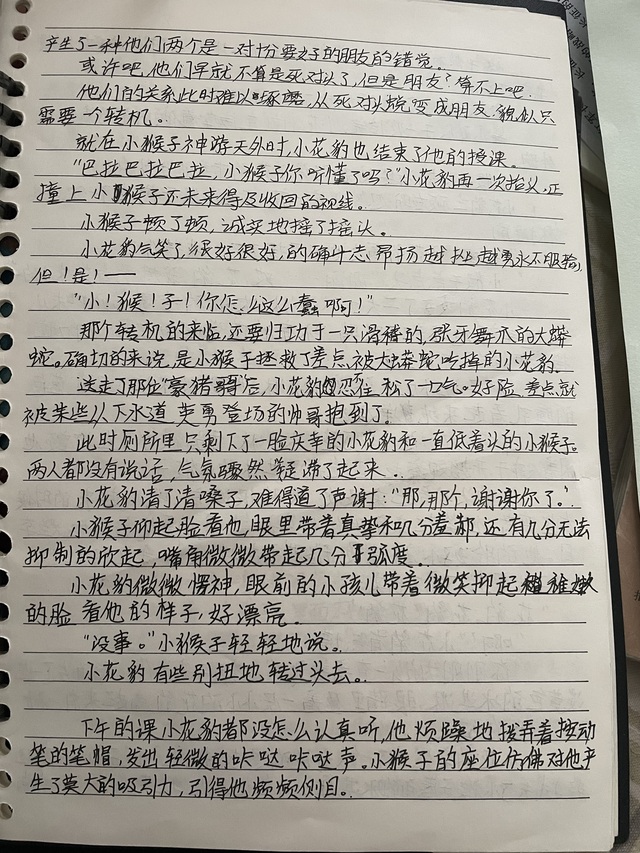 产生了一种他们两个是一对十分要好的朋友的错觉。
或许吧,他们早就不算是死对头了,但是朋友?算不上吧。
他们的关系此时难以琢磨,从死对头蜕变成朋友,貌似只
需要一个转机。
就在小猴子神游天外时,小花豹也结束了他的授课。
“巴拉巴拉巴拉,小猴子你听懂了吗?”小花豹再一次抬头,正
撞上小猴子还未来得及收回的视线。
小猴子顿了顿,诚实地摇了摇头。
小花豹气笑了,很好很好,的确斗志昂扬越挫越勇永不服输,
但!是!——
“小!猴!子!你怎么这么蠢啊!”
那个转机的来临,还要归功于一只滑稽的,张牙舞爪的大蟒
蛇。确切的来说,是小猴子拯救了差点被大蟒蛇吃掉的小花豹。
送走了那位“豪猪哥”后,小花豹忍住松了一口气。好险,差点就
被某些从下水道英勇登场的帅哥抱到了。
此时厕所里只剩下了一脸庆幸的小花豹和一直低着头的小猴子。
两人都没有说话,气氛骤然凝滞了起来.
小花豹清了清嗓子,难得道了声谢:“那,那个,谢谢你了。”
小猴子仰起脸看他,眼里带着真挚和几分羞郝,还有几分无法
抑制的欣起,嘴角微微带起几分弧度.
小花豹微微愣神,眼前的小孩儿带着微笑抑起稚嫩
的脸看他的样子,好漂亮.
“没事。”小猴子轻轻地说。
小花豹有些别扭地转过头去。
下午的课小花豹都没怎么认真听,他烦躁地拨弄着按动
笔的笔帽,发出轻微的咔哒咔哒声。小猴子的座位仿佛对他产
生了莫大的吸引力,引得他频频侧目。